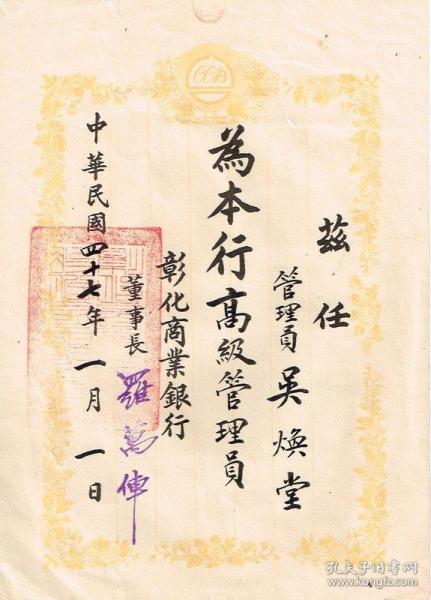 茲任
管理員吳煥堂
為本行高級管理員
彰化商業銀行
董事長 羅萬俥
中華民國四十七年一月一日
CCB
孔夫子旧书网
www.kongfz.com